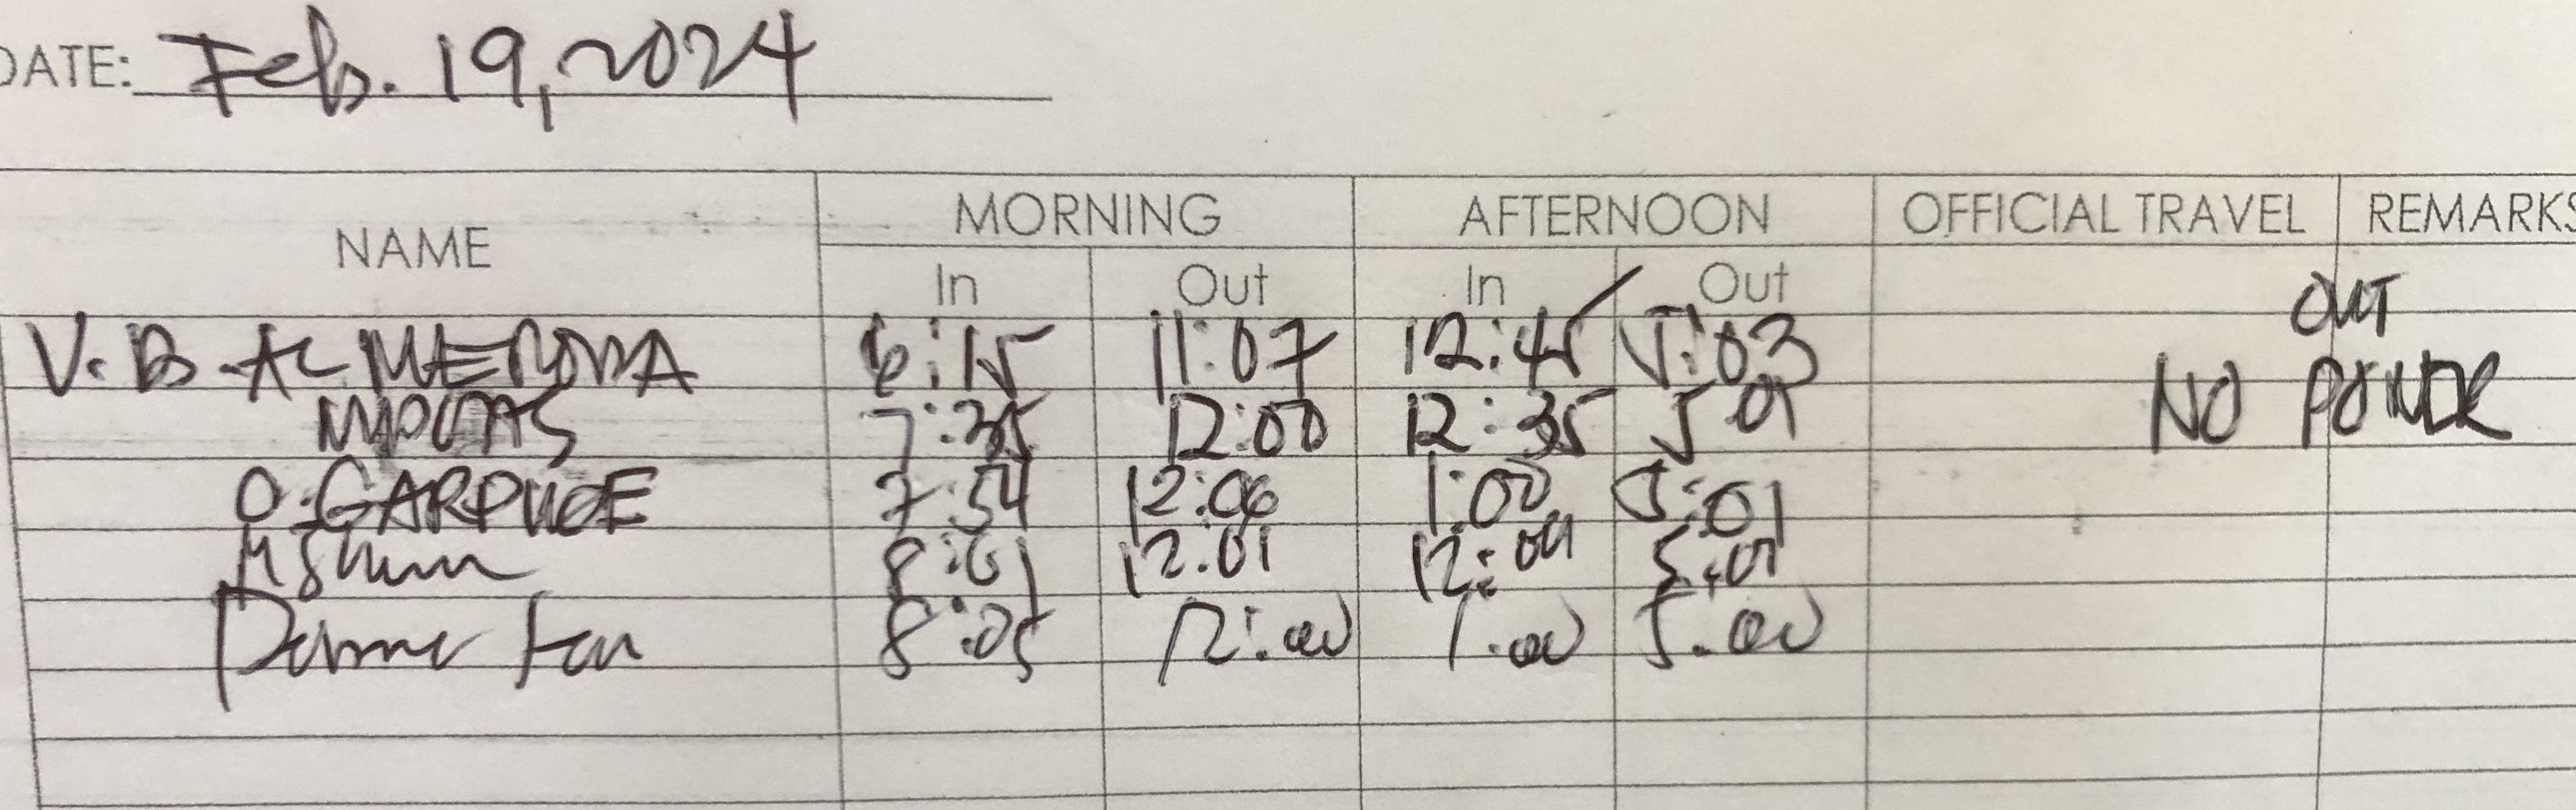 DATE: Feb. 19, 2024
NAME MORNING AFTERNOON OFFICIAL TRAVEL REMARKS
In Out In Out
OUT
V. B. ALMENDRA 6:15 11:07 12:45 5:03
NO POWER
7:35 12:00 12:35 5 01
O. GARDUQE 7:54 12:06 1:00 5:01
8:01 12:01 12:04 5:01
8:05 12:00 1:00 5:00